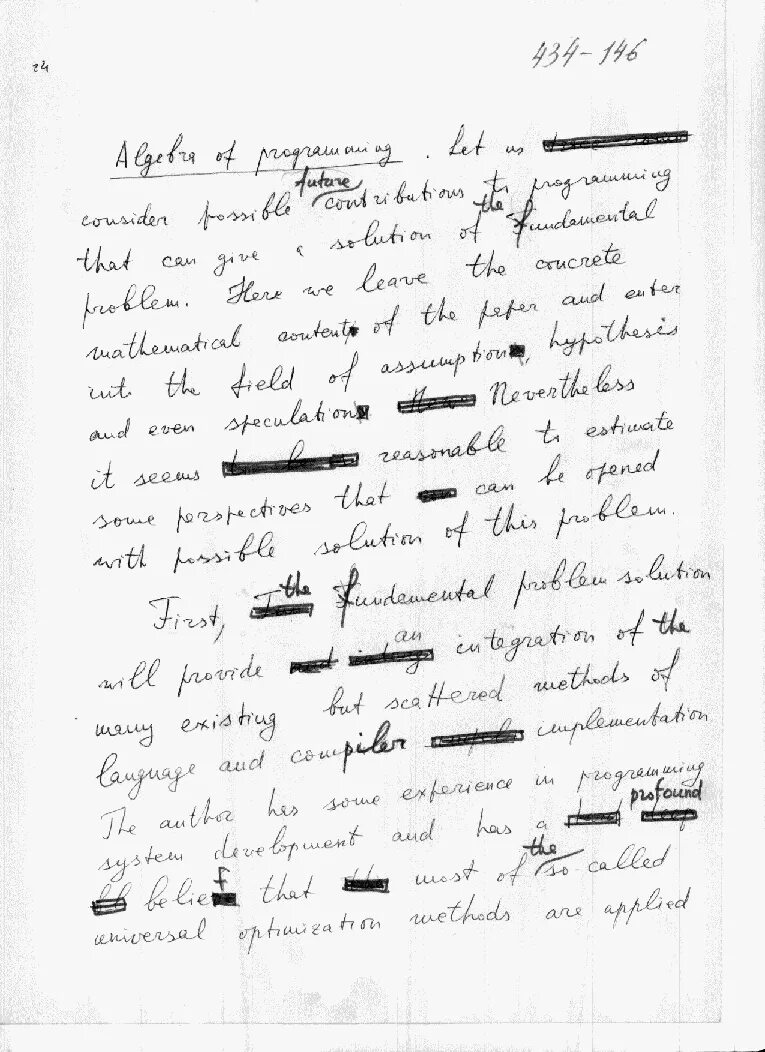 434-146
24
Algebra of programming. Let us
future
consider possible contributions to programming
the
that can give a solution of fundamental
problem. Here we leave the concrete
mathematical content of the peper and enter
into the field of assumption, hypothesis
and even speculation. Nevertheless
it seems reasonable to estimate
some perspectives that can be opened
with possible solution of this problem.
the
First, fundemental problem solution
an
will provide integration of the
many existing but scattered methods of
language and compiler implementation
The author has some experience in programming
profound
system development and has a
the
belief that most of so called
universal optimization methods are applied